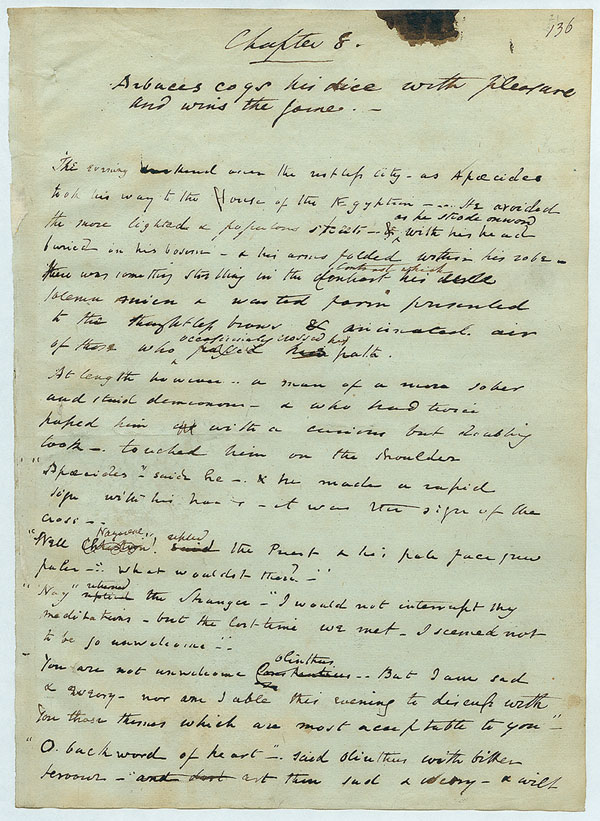 136
Chapter 8.
Arbaces cogs his dice with pleasure
and wins the game. -
The evening over the restless city - as Apæcides
took his way to the House of the Egyptian - .. He avoided
as he strode onward
the more lighted & populous streets - & with his head
buried in his bosom - & his arms folded within his robe -
contrast which
there was something startling in the contrast his
solemn mien & wasted form presented
to the thoughtless brows & animated air
occasionally crossed his
of those who passed his path.
At length however .. a man of a more sober
and staid demeanour - & who had twice
passed him with a curious but doubting
look - touched him on the shoulder
"Apæcides" - said he - & he made a rapid
sign with his hands - it was the sign of the
cross - -
Nazarene replied
"Well Christian! said the Priest & his pale face grew
paler - ". what wouldst thou? - "
returned
"Nay" replied the Stranger - "I would not interrupt thy
meditations - but the last time we met - I seemed not
to be so unwelcome" -
Olinthus
You are not unwelcome - - But I am sad
& weary - nor am I able this evening to discuss with
you those themes which are most acceptable to you" -
"O. backward of heart" - said Olinthus with bitter
fervour - "and dost art thou sad & weary - & wilt